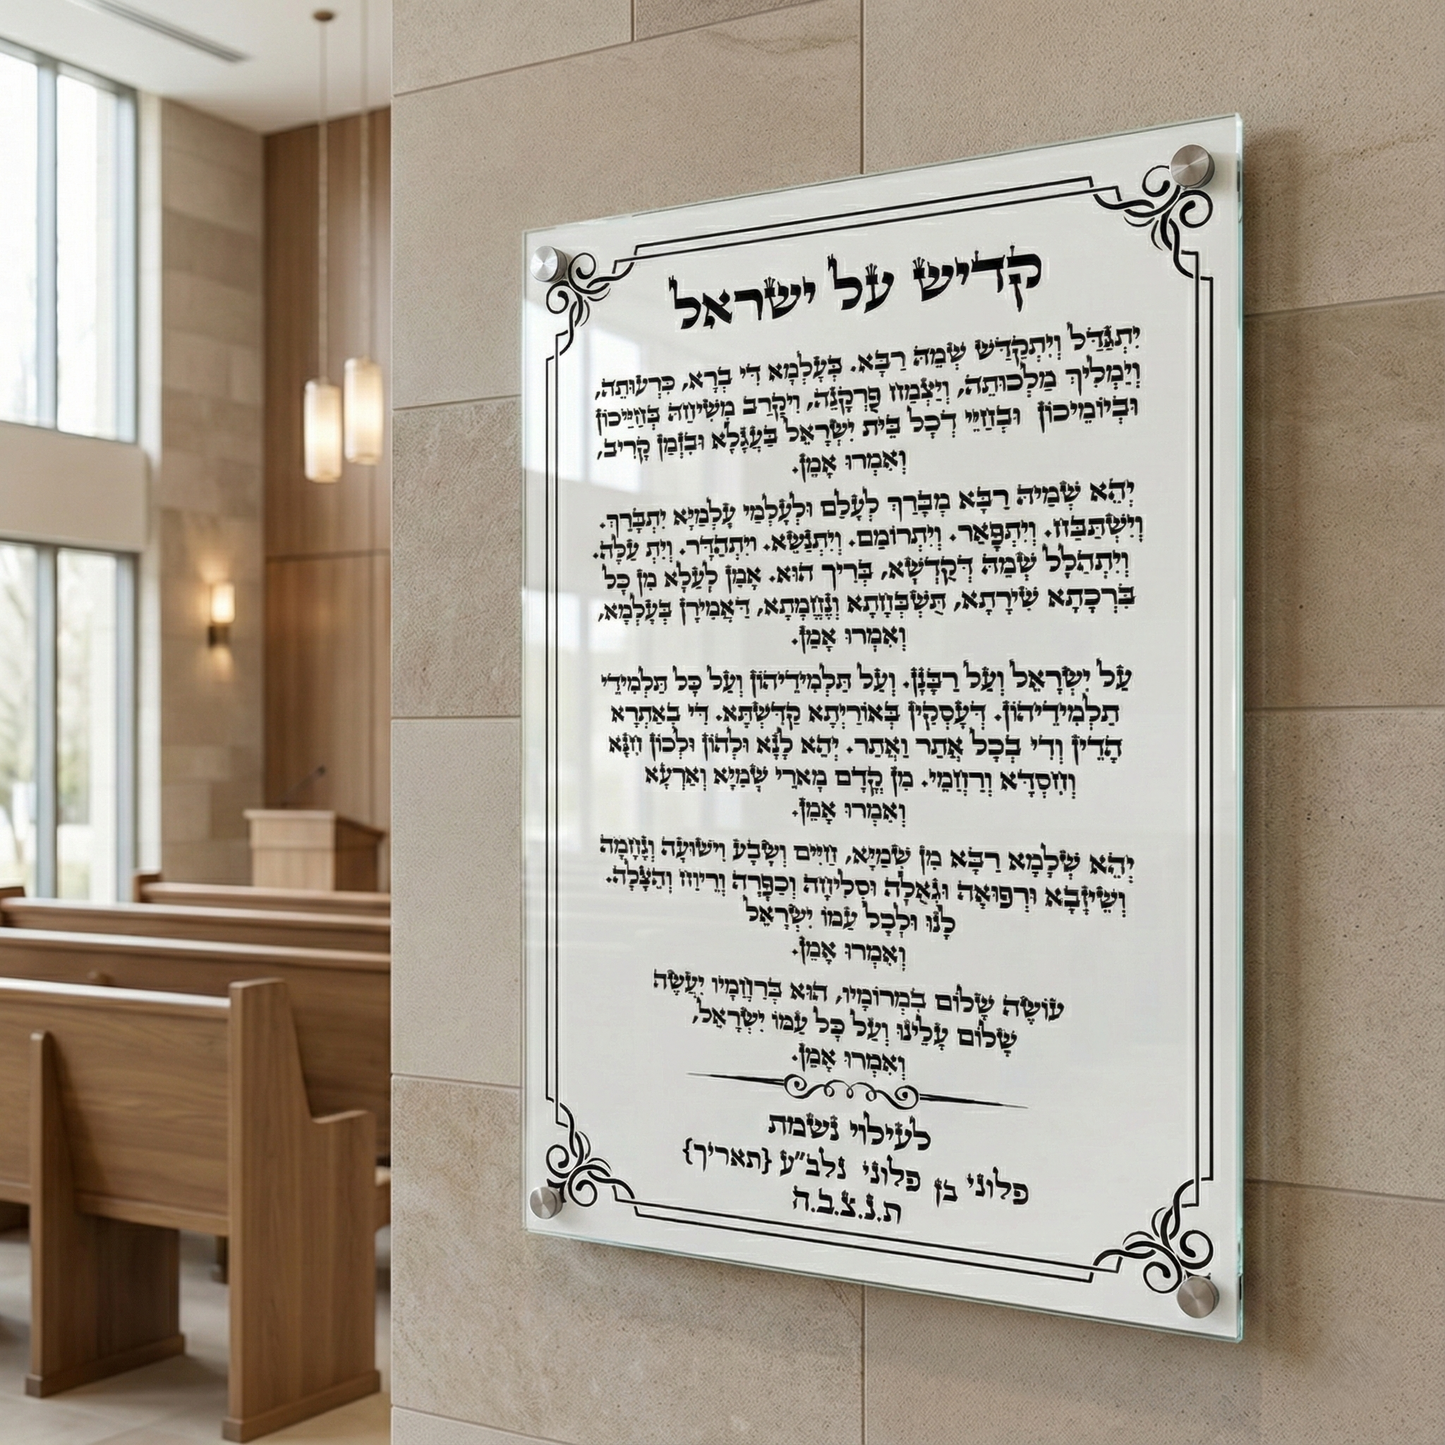 קדיש על ישראל
יִתְגַּדַּל וְיִתְקַדַּשׁ שְׁמֵהּ רַבָּא. בְּעָלְמָא דִּי בְרָא, כִּרְעוּתֵהּ,
וְיַמְלִיךְ מַלְכוּתֵהּ, וְיַצְמַח פֻּרְקָנֵהּ, וִיקָרֵב מְשִׁיחֵהּ בְּחַיֵּיכוֹן
וּבְיוֹמֵיכוֹן וּבְחַיֵּי דְכָל בֵּית יִשְׂרָאֵל בַּעֲגָלָא וּבִזְמַן קָרִיב,
וְאִמְרוּ אָמֵן.
יְהֵא שְׁמֵיהּ רַבָּא מְבָרַךְ לְעָלַם וּלְעָלְמֵי עָלְמַיָּא יִתְבָּרַךְ.
וְיִשְׁתַּבַּח. וְיִתְפָּאַר. וְיִתְרוֹמַם. וְיִתְנַשֵּׂא. וְיִתְהַדָּר. וְיִת עַלֶּה.
וְיִתְהַלָּל שְׁמֵהּ דְּקֻדְשָׁא, בְּרִיךְ הוּא. אָמֵן לְעֵלָּא מִן כָּל
בִּרְכָתָא שִׁירָתָא, תֻּשְׁבְּחָתָא וְנֶחֱמָתָא, דַּאֲמִירָן בְּעָלְמָא,
וְאִמְרוּ אָמֵן.
עַל יִשְׂרָאֵל וְעַל רַבָּנָן. וְעַל תַּלְמִידֵיהוֹן וְעַל כָּל תַּלְמִידֵי
תַלְמִידֵיהוֹן. דְּעָסְקִין בְּאוֹרַיְתָא קַדִּשְׁתָּא. דִּי בְאַתְרָא
הָדֵין וְדִי בְכָל אֲתַר וַאֲתַר. יְהֵא לָנָא וּלְהוֹן וּלְכוֹן חִנָּא
וְחִסְדָּא וְרַחֲמֵי. מִן קֳדָם מָארֵי שְׁמַיָּא וְאַרְעָא
וְאִמְרוּ אָמֵן.
יְהֵא שְׁלָמָא רַבָּא מִן שְׁמַיָּא, חַיִּים וְשָׂבָע וִישׁוּעָה וְנֶחָמָה
וְשֵׁיזָבָא וּרְפוּאָה וּגְאֻלָּה וּסְלִיחָה וְכַפָּרָה וְרֵיוַח וְהַצָּלָה.
לָנוּ וּלְכָל עַמּוֹ יִשְׂרָאֵל
וְאִמְרוּ אָמֵן.
עוֹשֶׂה שָׁלוֹם בִּמְרוֹמָיו, הוּא בְּרַחֲמָיו יַעֲשֶׂה
שָׁלוֹם עָלֵינוּ וְעַל כָּל עַמּוֹ יִשְׂרָאֵל,
וְאִמְרוּ אָמֵן.
לעילוי נשמת
פלוני בן פלוני נלב"ע {תאריך}
ת.נ.צ.ב.ה